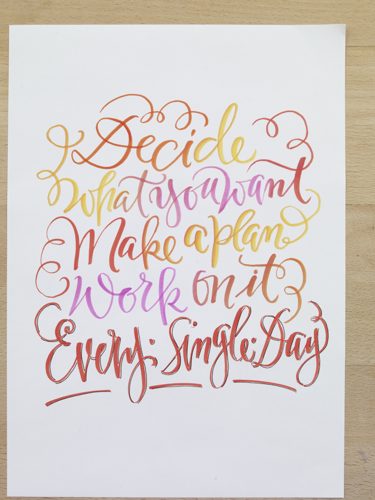 Decide
what you want
Make a plan
Work on it
Every. Single. Day